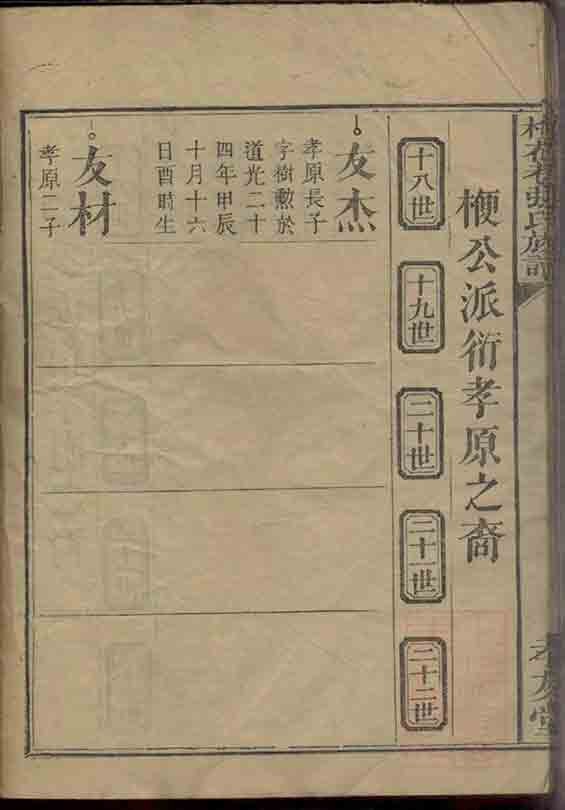 張氏族譜
孝友堂
楩公派衍孝原之裔
十八世
十九世
二十世
二十一世
二十二世
友杰
孝原長子
字樹勲於
道光二十
四年甲辰
十月十六
日酉時生
友材
孝原二子